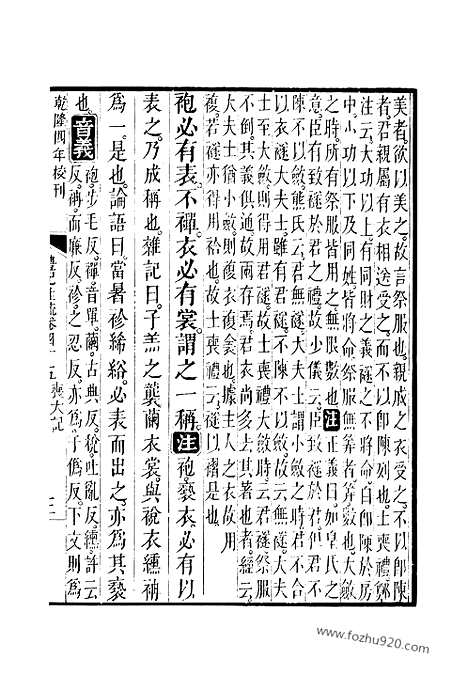 美者。欲以美之。故言祭服也。親戚之衣受之。不以即陳
者。君親屬有衣相送受之。而不以即陳列也。士喪禮鄭
注云。大功以上有同財之義。襚之不將命自即陳於房
中。小功以下及同姓皆將命。祭服無筭者。筭數也。大斂
之時。所有祭服皆用之。無限數也。注正義曰。如皇氏之
意。臣有致襚於君之禮。故少儀云。臣致襚於君。但君不
陳不以斂。熊氏云。君無襚大夫士。謂小斂之時。君不合
以衣襚大夫士。雖有君襚。不陳不以斂。故云無襚大夫
士。至大斂則得用君襚。故士喪禮大斂時云。君襚祭服
不倒。其義俱通。故兩存焉。君衣尚多去其著也者。經云。
大夫士猶小斂則複衣複衾也。據主人之衣。故用
複。若襚亦得用袷也。故士喪禮云。襚以褶是也。
袍必有表。不襌。衣必有裳。謂之一稱。注袍。褻衣。必有以
表之。乃成稱也。雜記曰。子羔之襲。繭衣裳。與稅衣纁袡
爲一。是也。論語曰。當暑袗絺綌。必表而出之。亦爲其褻
也。音義袍。步毛反。襌音單。繭。古典反。稅。吐亂反。纁。許云
反。袡。而廉反。袗。之忍反。亦爲。于僞反。下文則爲
乾隆四年校刊
禮記注疏卷四十五 喪大記
www.fozhu920.com